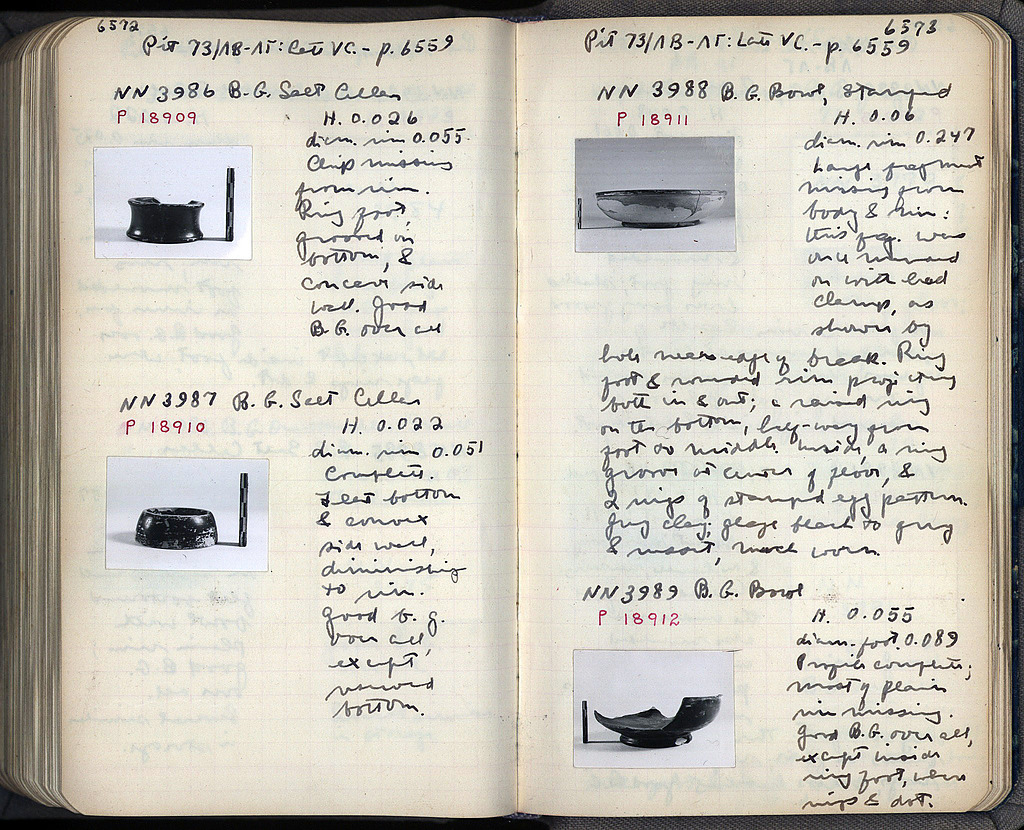 6572
Pit 73/ΛB-ΛΓ: Late VC. - p. 6559
NN 3986 B.G. Salt Cellar
P 18909
H. 0.026
diam. rim 0.055
Chip missing
from rim.
Ring foot,
grooved on
bottom, &
concave side
wall. Good
B.G. over all
NN 3987 B.G. Salt Cellar
P 18910
H. 0.022
diam. rim 0.051
Complete.
Flat bottom
& convex
side wall,
diminishing
to rim.
Good b.g.
over all,
except
reserved
bottom.
6573
Pit 73/ΛB-ΛΓ: Late VC. - p. 6559
NN 3988 B.G. Bowl, Stamped
P 18911
H. 0.06
diam. rim 0.247
Large fragment
missing from
body & rim:
this frag. was
once mended
on with lead
clamps, as
shown by
hole near edge of break. Ring
foot & rounded rim projecting
both in & out; a raised ring
on the bottom, half-way from
foot to middle. Inside, a ring
groove at center of floor, &
2 rings of stamped egg pattern.
Gray clay; glaze black to gray
& , much worn.
NN 3989 B.G. Bowl
P 18912
H. 0.055
diam. foot 0.089
Profile complete;
most of plain
rim missing.
Good B.G. over all,
except inside
ring foot, where
rings & dot.